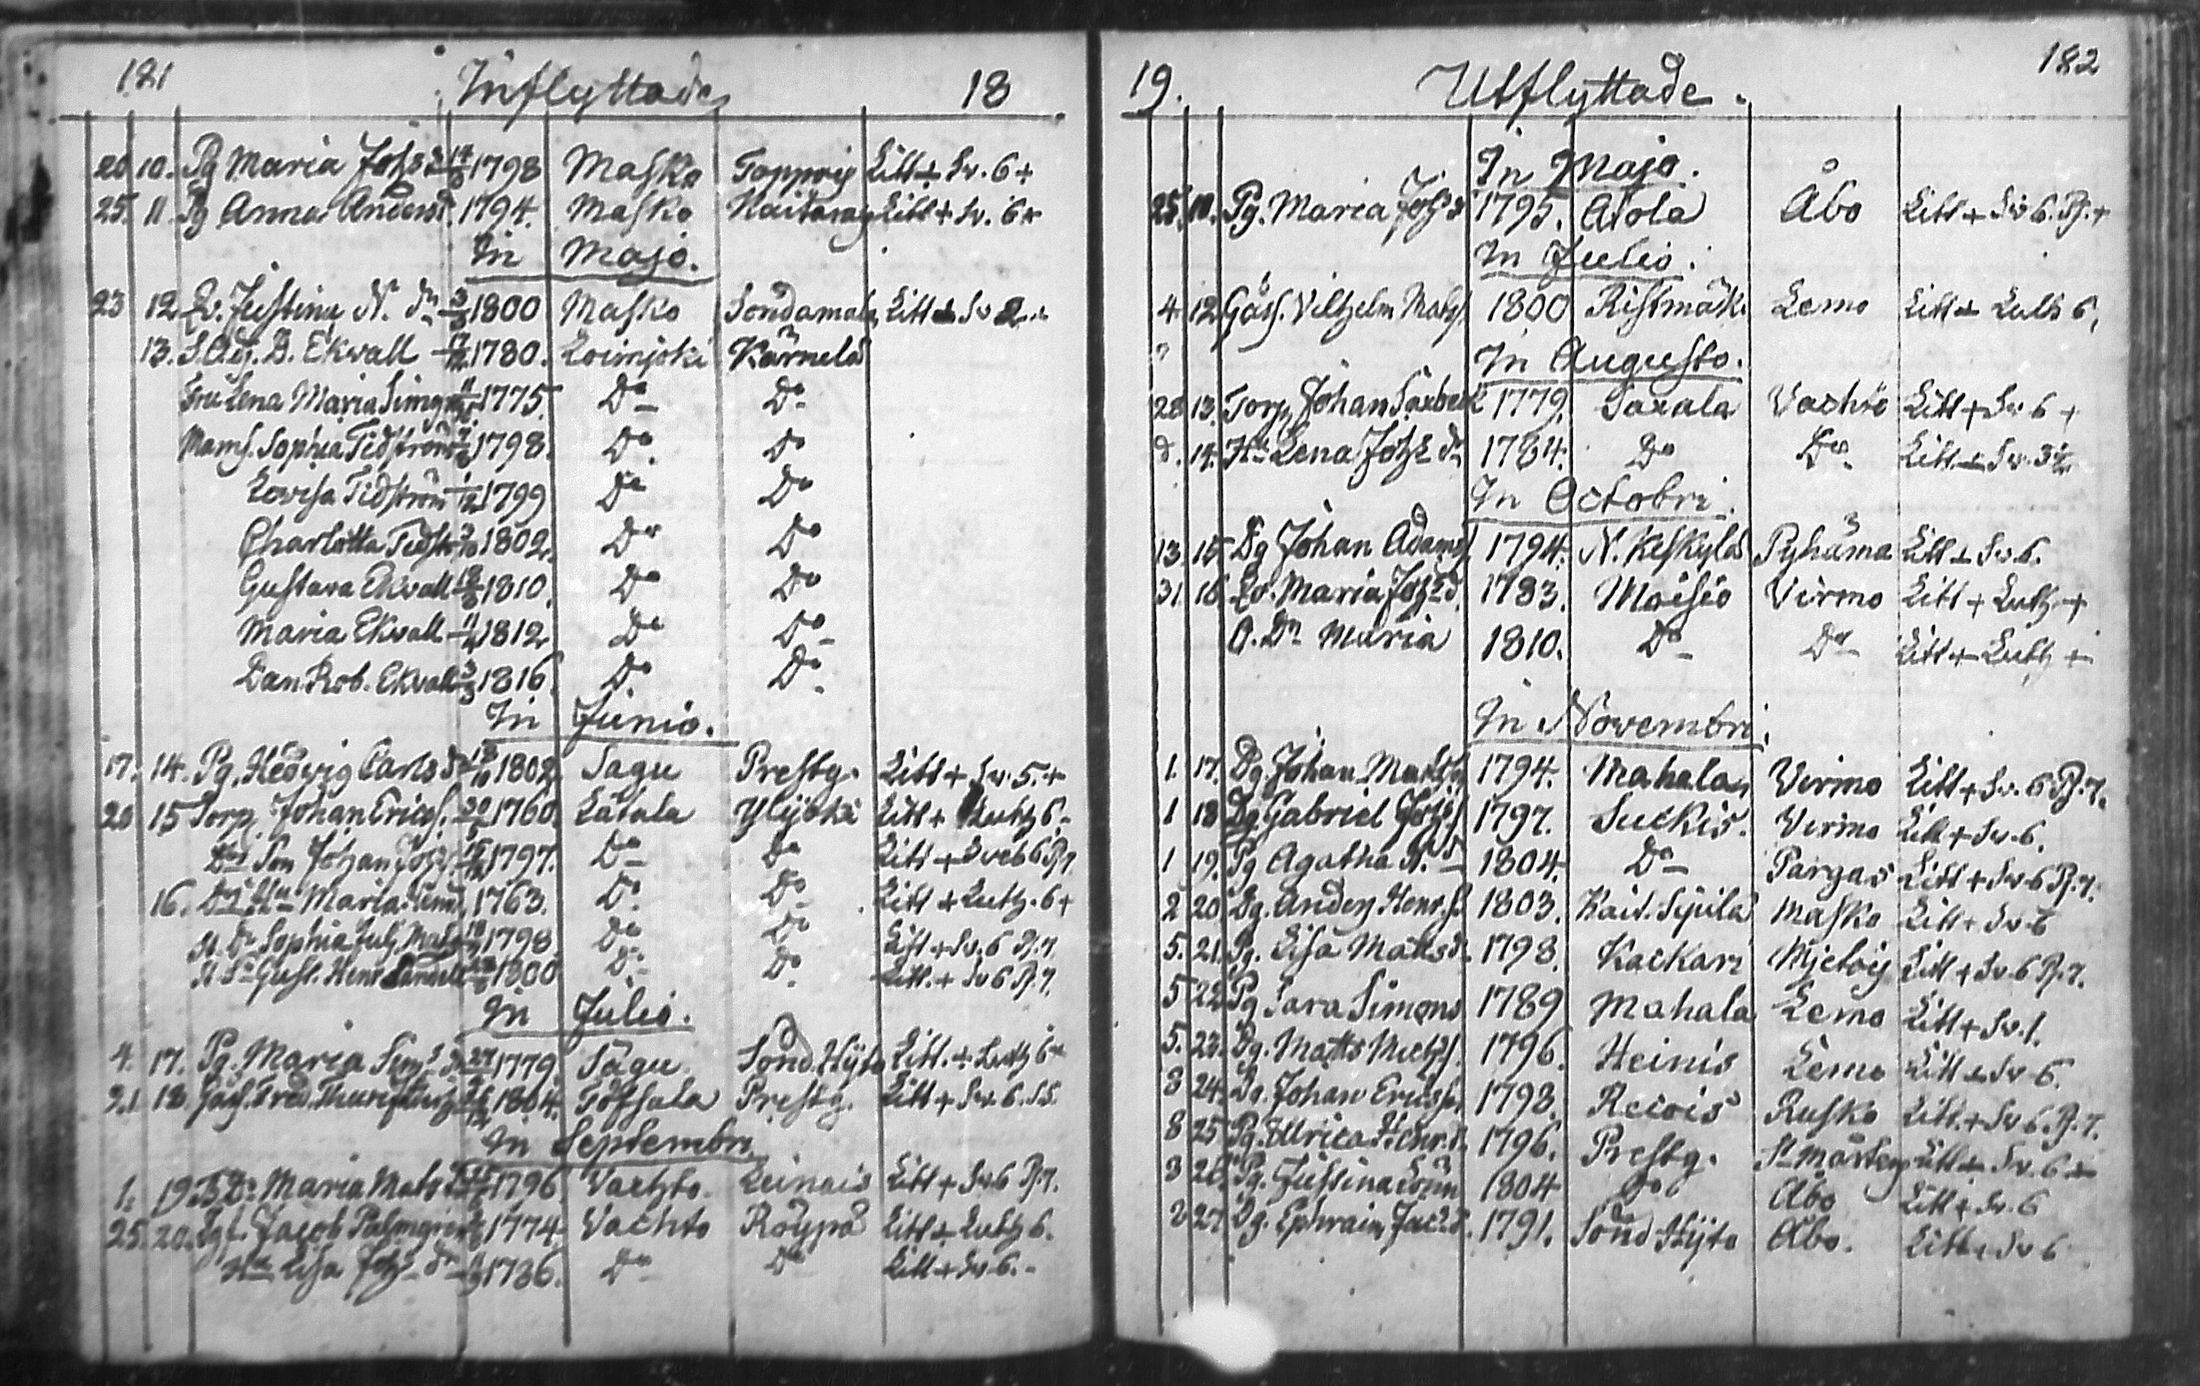 181 Inflyttade 18
20 10. Pg Maria Johsd 1798 Masko Toppois Litt + Sv. 6 +
25. 11. Pg Anna Andersd. 1794. Masko Litt + Sv. 6 +
In Majo.
23 12 Justina 1800 Masko Sondamala Litt + Sv
13. B. Ekvall 1780. Loimjoki Kärnelä
Fru Lena Maria 1775. Do Do
Mams. Sophia Tidström 1798. Do. Do
Lovisa Tidström 1799 Do Do
Charlotta Tidstr 1802. Do Do
Gustava Ekvall 1810. Do Do
Maria Ekvall 1812 Do Do
Dan. Rob. Ekvall 1816. Do Do
In Junio.
17. 14. Pg. Hedvig Carlsd 1802. Sagu Prestg. Litt + Sv. 5. +
20 15 Torp. Johan Erics. 1760. Latala Ylijoki Litt + Luth 6.
Ds Son Johan Johs 1797. Do Do Litt + Sv 6 Pf. 7.
16. Maria 1763. Do Do Litt + Luth. 6 +
Sophia Mats 1798 Do Do Litt + Sv. 6 Pf. 7
Gust. Henr 1800 Do Do Litt. + Sv 6 Pf. 7.
In Julio.
4. 17. Pg. Maria 1779 Sagu. Sönd. Hÿto Litt. + Luth 6 +
21. 18 Gäss. Fred. 1804. Töfsala Prestg. Litt + Sv. 6.
In Septembri
1. 19 Maria Mats 1796. Vachto. Leinais Litt + Sv 6 Pf. 7.
25. 20. Jacob Palmgren 1774. Vachto Röÿpä Litt + Luth 6.
Hu Lisa Johs d 1786. Do Do Litt + Sv 6.
19. Utflyttade. 182
In Majo.
25. 10. Pg. Maria Johs d 1795. Alola Åbo Litt + Sv 6. Pf. +
In Julio.
4. 12 Gäss. Vilhelm Mats 1800 Ristmäk. Lemo Litt + Luth 6.
In Augusto.
28 13. Torp. Johan Saxbeck 1779. Saxala Vachto Litt + Sv 6 +
d. 14. Hu Lena Johs d 1784. Do Do Litt. + Sv. 3½
In Octobri.
13. 15 Dg Johan Adams 1794. N. Keskylä Pyhäma Litt + Sv 6.
31. 16 Maria Johs d. 1783. Moisio Virmo Litt + Luth +
O. Dr Maria 1810. Do Do Litt + Luth +
In Novembri.
1. 17. Dg Johan Matss 1794. Mahala Virmo Litt + Sv. 6 Pf. 7.
1 18 Dg Gabriel Johs 1797. Suckis. Virmo Litt + Sv. 6.
1 19. Pg Agatha 1804. Do Pargas Litt + Sv 6 Pf. 7.
2 20 Dg. Anders Henr. s 1803. Kait. Sipilä Masko Litt + Sv 6
5. 21. Pg. Lisa Matsd. 1798. Kackari Mjetois Litt + Sv 6 Pf. 7.
5 22 Pg Sara Simons 1789 Mahala Lemo Litt + Sv. 1.
5. 23. Dg. Matts Michs. 1796. Heinis Lemo Litt + Sv 6.
8 24. Dg. Johan Ericss. 1798. Recois Rusko Litt. + Sv 6. Pf. 7.
8 25 Pg. Ulrica Henr. d. 1796. Prestg. St Mårtens Litt + Sv. 6 +
8 26. Pg. Justina 1804 Do Åbo Litt + Sv. 6
8 27 Dg. Ephraim Jac. s. 1791. Sönd Hÿto Åbo. Litt + Sv 6